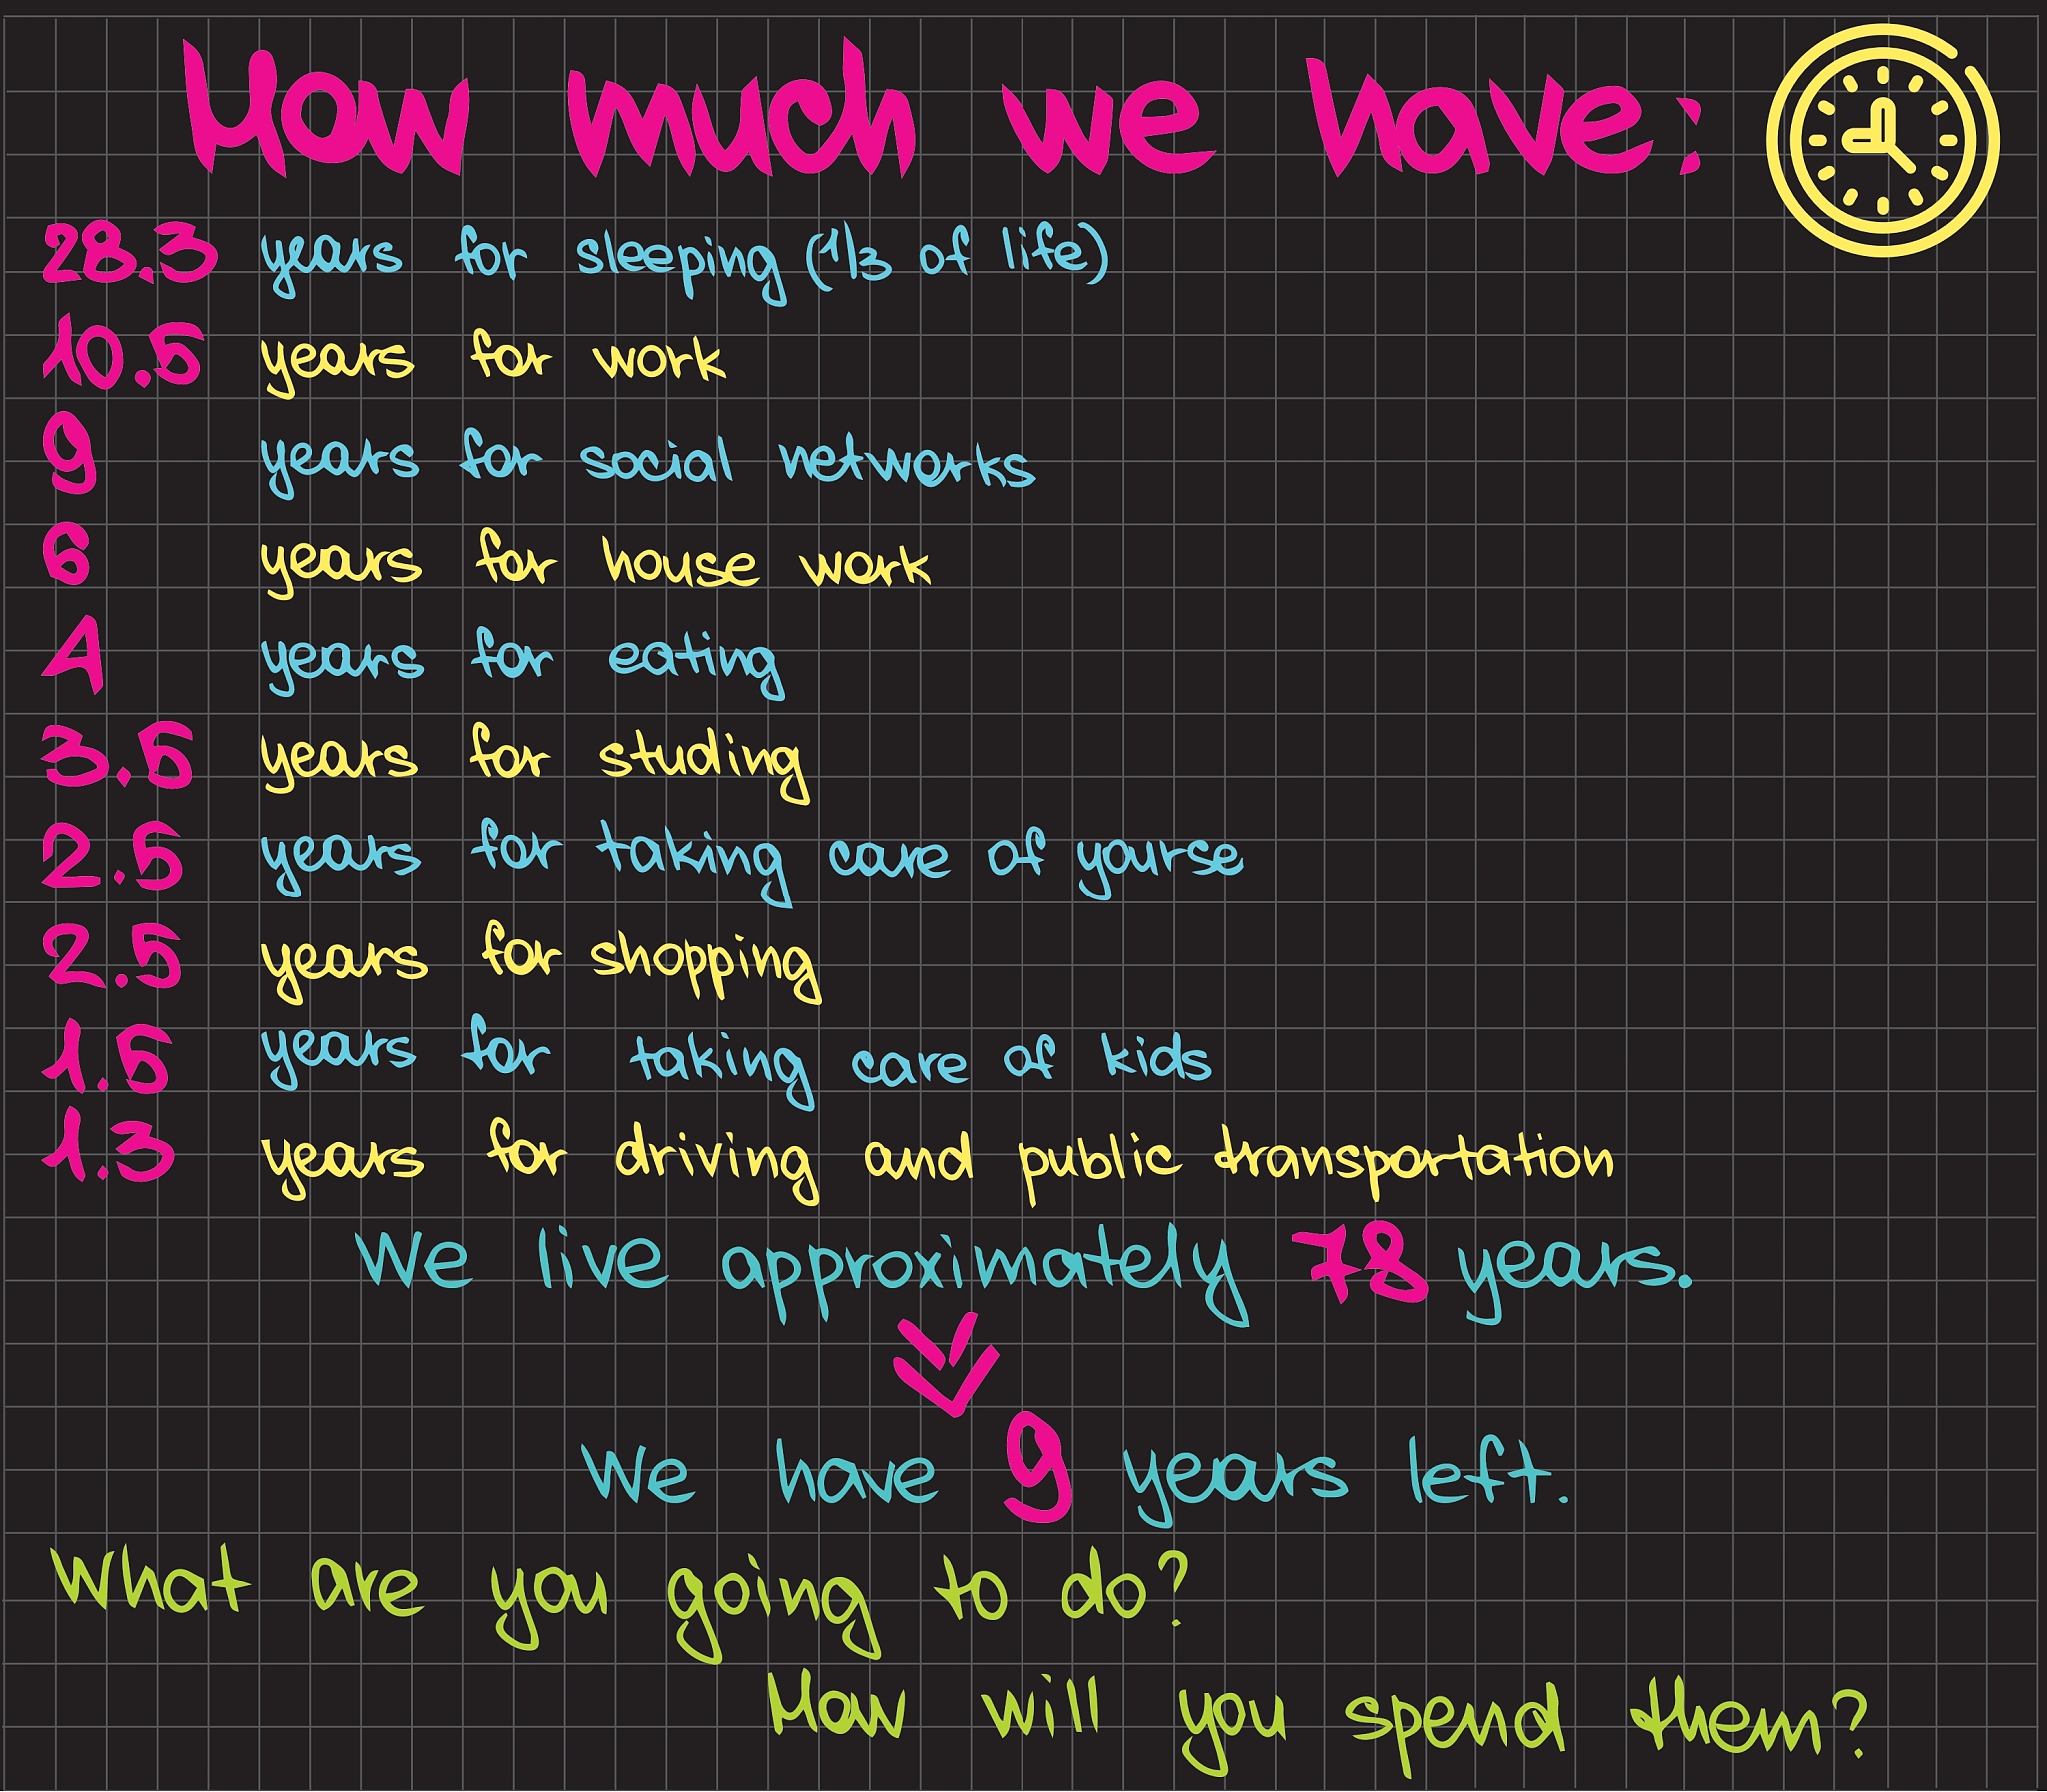 How much we have:
28.3 years for sleeping (1/3 of life)
10.5 years for work
9 years for social networks
6 years for house work
4 years for eating
3.5 years for studing
2.5 years for taking care of yourse
2.5 years for shopping
1.5 years for taking care of kids
1.3 years for driving and public transportation
We live approximately 78 years.
We have 9 years left.
What are you going to do?
How will you spend them?